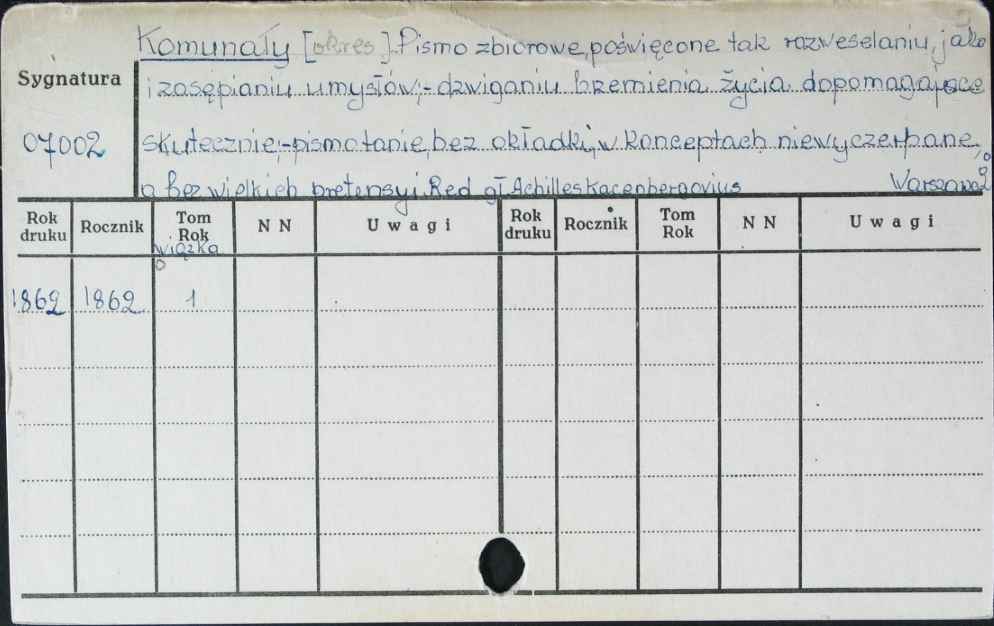 Komunały [okres]. Pismo zbiorowe, poświęcone tak rozweselaniu, jako
Sygnatura
i zasępianiu umysłów;- dzwiganiu brzemienia życia dopomagające
07002
skutecznie;- pismo tanie, bez okładki, w konceptach niewyczerpane,
a bez wielkich pretensyi. Red. gł. Achilles Kacenbergovius Warszawa
Rok druku Rocznik Tom Rok N N Uwagi Rok druku Rocznik Tom Rok N N Uwagi
wiązka
1862 1862 1